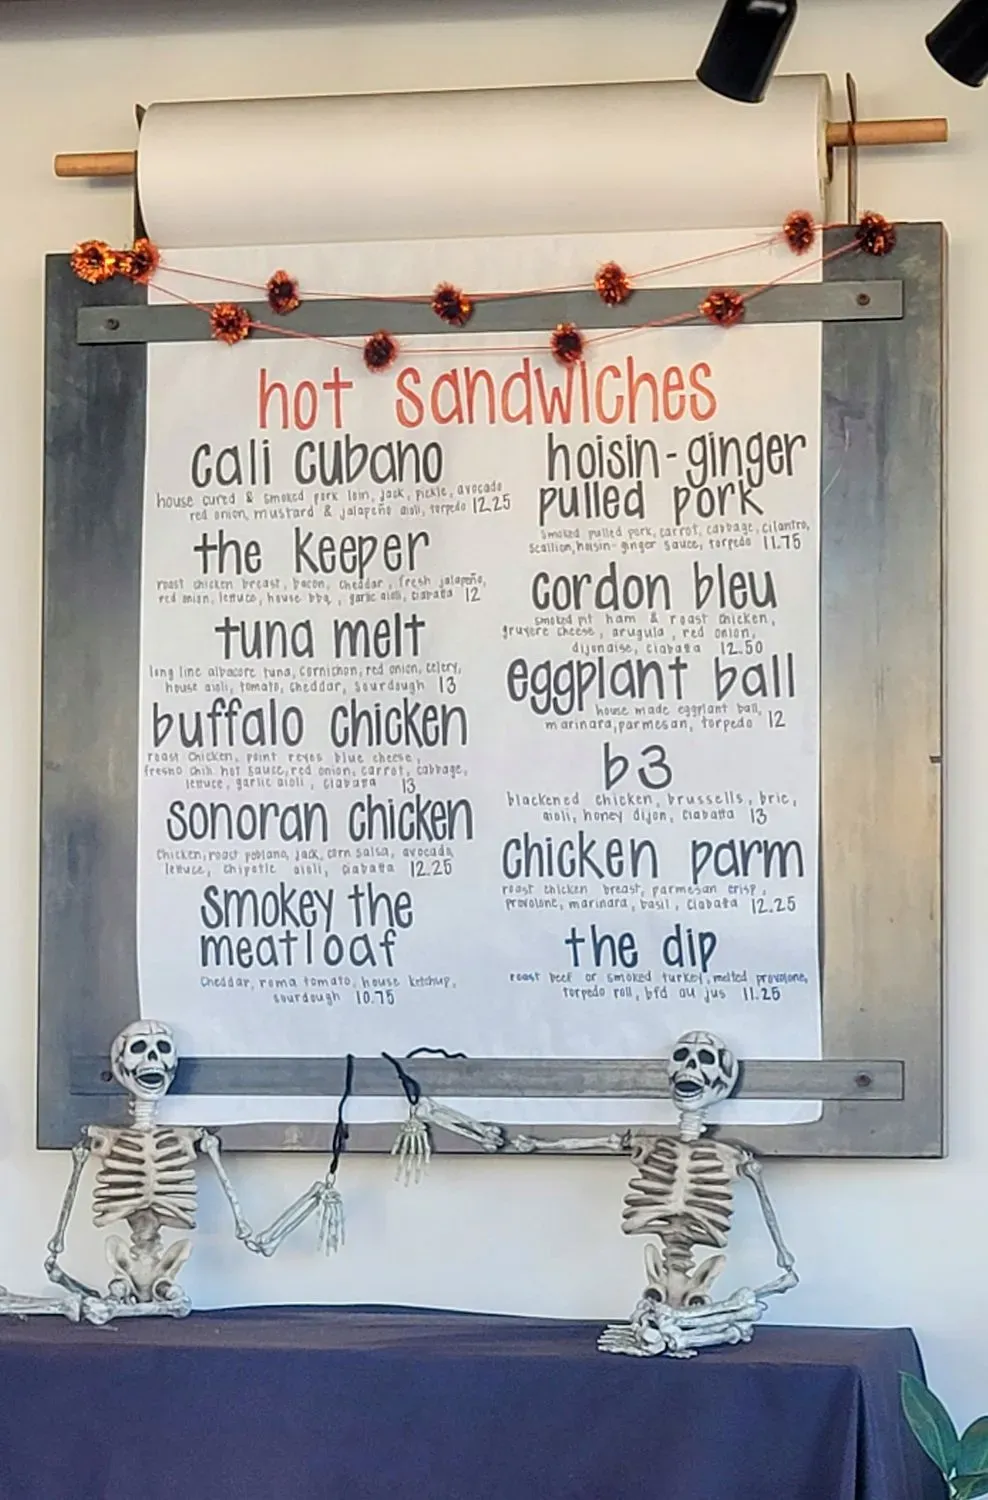 hot sandwiches
cali cubano
house cured & smoked pork loin, jack, pickle, avocado
red onion, mustard & jalapeño aioli, torpedo 12.25
the keeper
roast chicken breast, bacon, cheddar, fresh jalapeño,
red onion, lettuce, house bbq, garlic aioli, ciabatta 12
tuna melt
long line albacore tuna, cornichon, red onion, celery,
house aioli, tomato, cheddar, sourdough 13
buffalo chicken
roast chicken, point reyes blue cheese,
fresno chili hot sauce, red onion, carrot, cabbage,
lettuce, garlic aioli, ciabatta 13
sonoran chicken
chicken, roast poblano, jack, corn salsa, avocado,
lettuce, chipotle aioli, ciabatta 12.25
smokey the
meatloaf
cheddar, roma tomato, house ketchup,
sourdough 10.75
hoisin-ginger
pulled pork
smoked pulled pork, carrot, cabbage, cilantro,
scallion, hoisin-ginger sauce, torpedo 11.75
cordon bleu
smoked pit ham & roast chicken,
gruyere cheese, arugula, red onion,
dijonaise, ciabatta 12.50
eggplant ball
house made eggplant ball,
marinara, parmesan, torpedo 12
b3
blackened chicken, brussells, brie,
aioli, honey dijon, ciabatta 13
chicken parm
roast chicken breast, parmesan crisp,
provolone, marinara, basil, ciabatta 12.25
the dip
roast beef or smoked turkey, melted provolone,
torpedo roll, bfd au jus 11.25